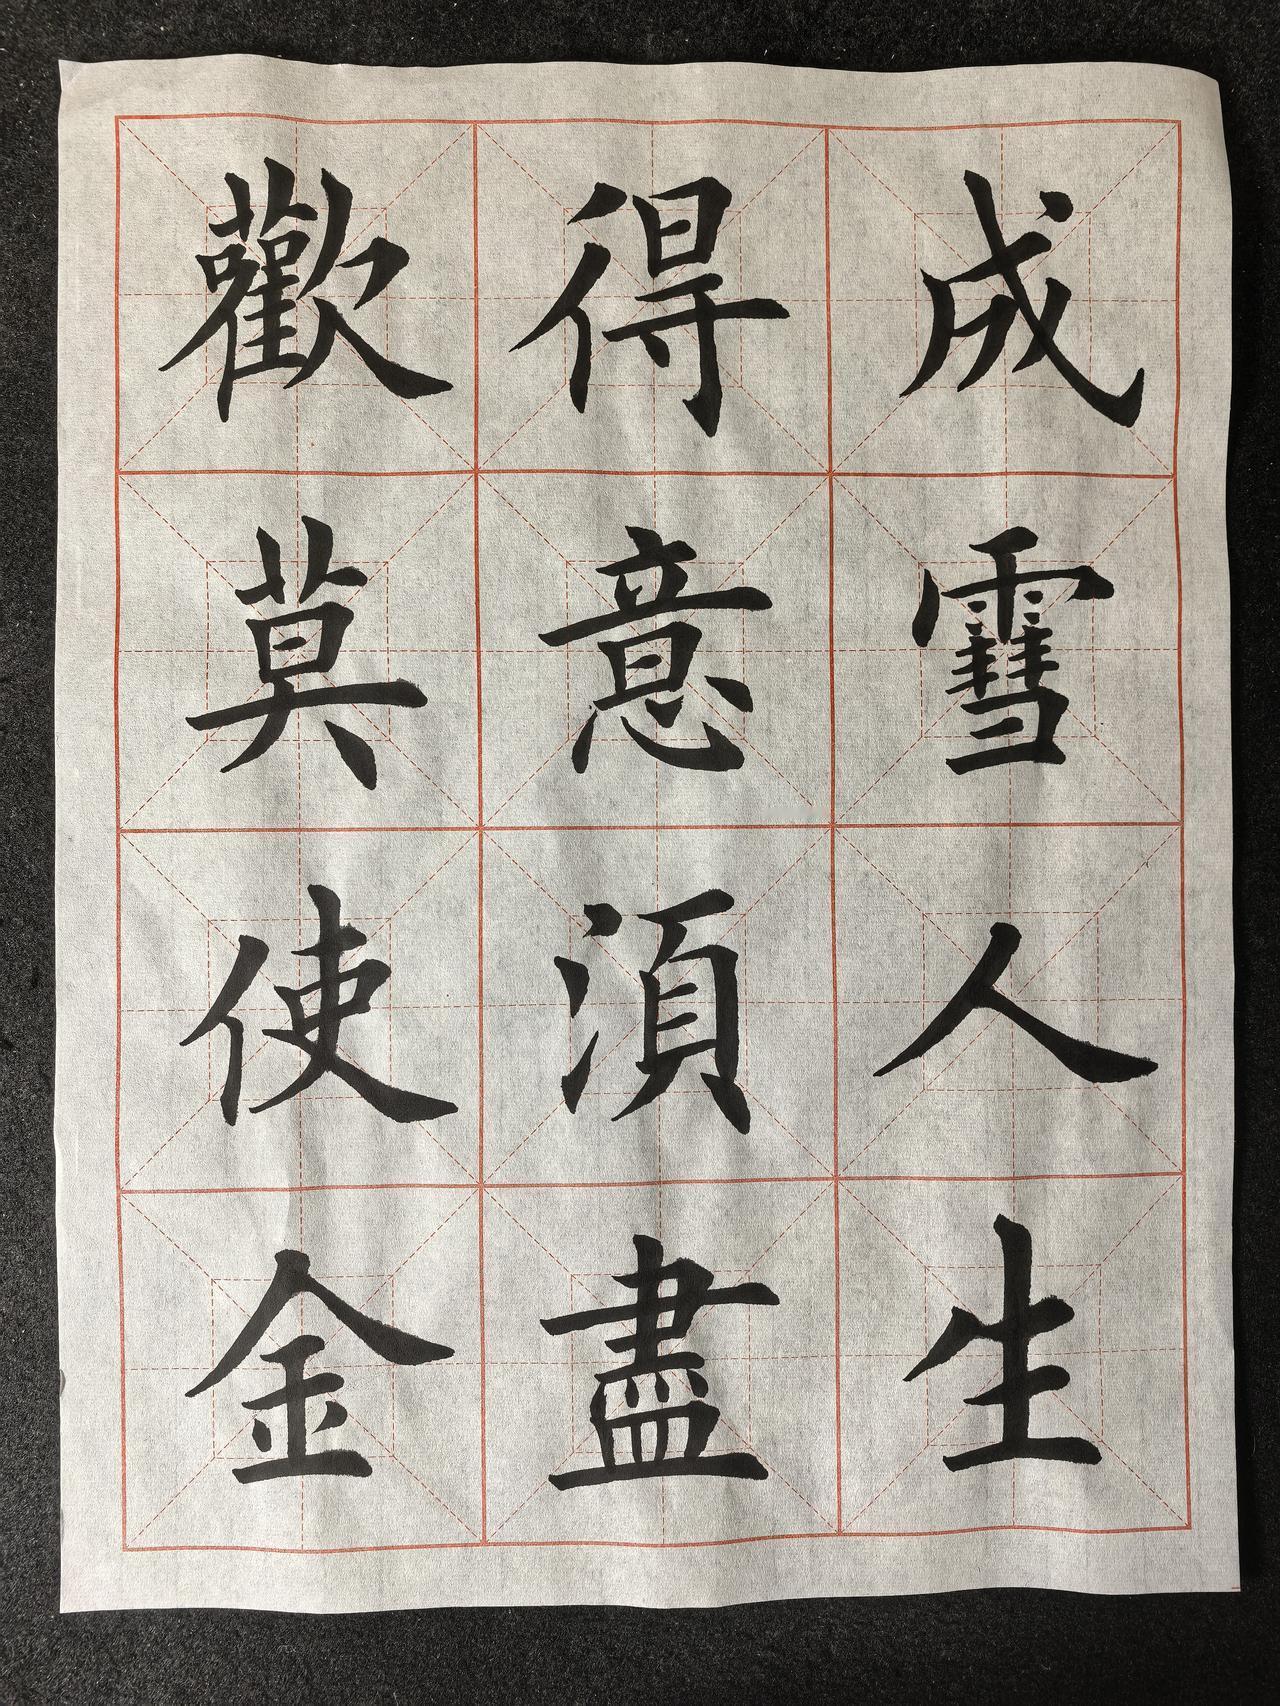 成䨮人生
得意湏盡
歡莫使金